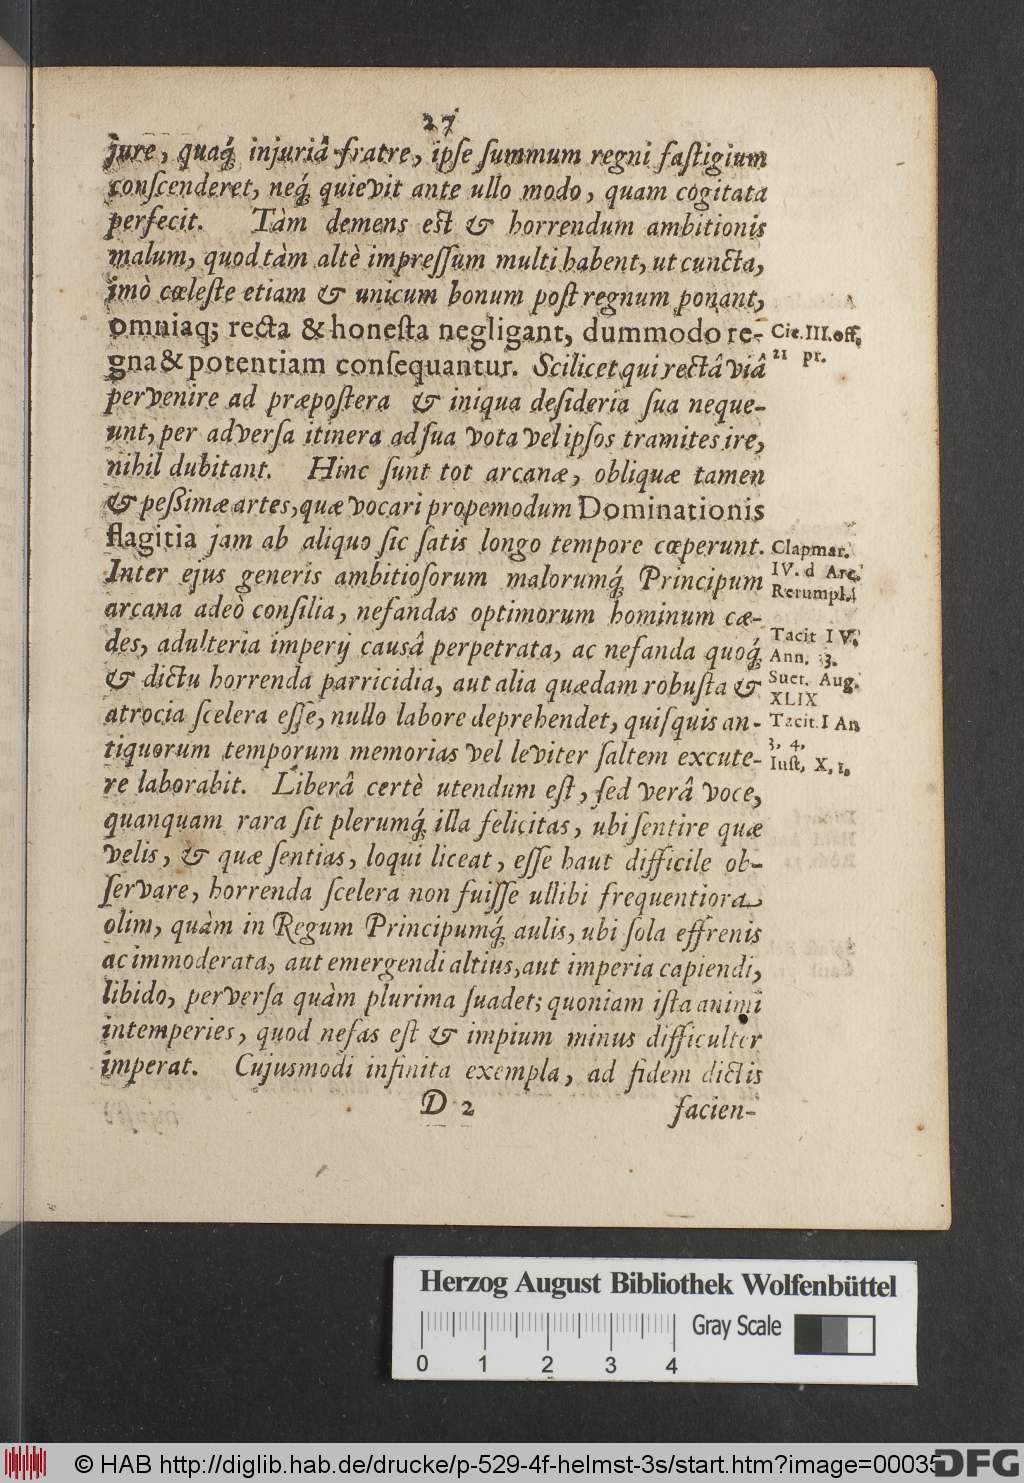 27
jure, quaq́; injuriâ fratre, ipſe ſummum regni faſtigium
conſcenderet, neq́; quievit ante ullo modo, quam cogitata
perfecit. Tàm demens eſt & horrendum ambitionis
malum, quod tàm altè impreſſum multi habent, ut cuncta,
imò cœleſte etiam & unicum bonum poſt regnum ponant,
omniaq; recta & honeſta negligant, dummodo re-
Cic. III. off.
gna & potentiam conſequantur. Scilicet qui rectâ viâ
21 pr.
pervenire ad præpoſtera & iniqua deſideria ſua neque-
unt, per adverſa itinera ad ſua vota vel ipſos tramites ire,
nihil dubitant. Hinc ſunt tot arcanæ, obliquæ tamen
& peßimæ artes, quæ vocari propemodum Dominationis
flagitia jam ab aliquo ſic ſatis longo tempore cœperunt.
Clapmar.
Inter ejus generis ambitioſorum malorumq́; Principum
IV. d Arc.
arcana adeò conſilia, nefandas optimorum hominum cæ-
Rerumpl.1
des, adulteria imperij causâ perpetrata, ac nefanda quoq́;
Tacit IV.
Ann. 3.
& dictu horrenda parricidia, aut alia quædam robuſta &
Suet. Aug.
XLIX
atrocia ſcelera eſſe, nullo labore deprehendet, quiſquis an-
Tacit. I An
tiquorum temporum memorias vel leviter ſaltem excute-
3. 4.
Iuſt. X, 1.
re laborabit. Liberâ certè utendum eſt, ſed verâ voce,
quanquam rara ſit plerumq́; illa felicitas, ubi ſentire quæ
velis, & quæ ſentias, loqui liceat, eſſe haut difficile ob-
ſervare, horrenda ſcelera non fuiſſe ullibi frequentiora
olim, quàm in Regum Principumq́; aulis, ubi ſola effrenis
ac immoderata, aut emergendi altius, aut imperia capiendi,
libido, perverſa quàm plurima ſuadet; quoniam iſta animi
intemperies, quod nefas eſt & impium minus difficulter
imperat. Cujusmodi infinita exempla, ad fidem dictis
D 2
facien-
Herzog August Bibliothek Wolfenbüttel
Gray Scale
0 1 2 3 4
© HAB http://diglib.hab.de/drucke/p-529-4f-helmst-3s/start.htm?image=00035
DFG